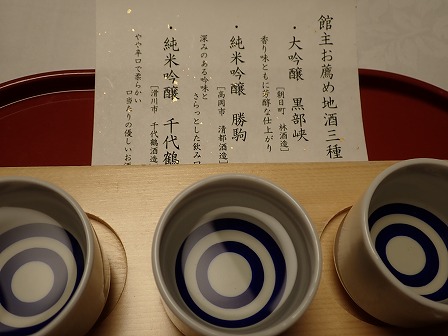 館主お薦め地酒三種
・大吟醸 黒部峡
[朝日町 林酒造]
香り味ともに芳醇な仕上がり
・純米吟醸 勝駒
[高岡市 清都酒造]
深みのある吟味と
さらっとした飲み口
・純米吟醸 千代鶴
[滑川市 千代鶴酒造]
やや辛口で柔らかい
口当たりの優しいお酒